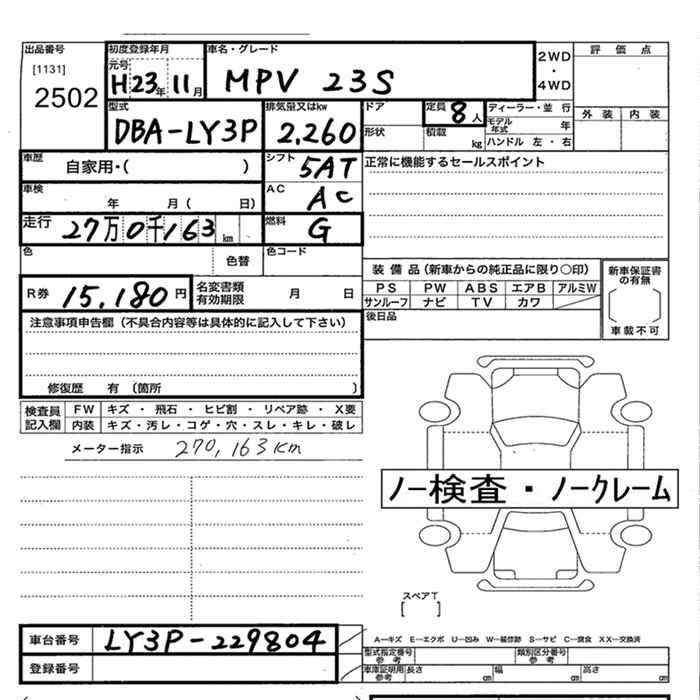 出品番号 [1131] 2502
初度登録年月 元号 H23年 11月
車名・グレード MPV 23S
2WD ・ 4WD
評価点
外装 内装
型式 DBA-LY3P
排気量又はkw 2,260
ドア
形状
定員 8人
積載 kg
ディーラー・並行
モデル年式 年
ハンドル 左・右
車歴 自家用・( )
シフト 5AT
正常に機能するセールスポイント
車検 年 月( 日)
AC AC
走行 27万0千163km
燃料 G
色 色替
色コード
R券 15,180円
名変書類有効期限 月 日
装備品(新車からの純正品に限り○印)
PS PW ABS エアB アルミW
サンルーフ ナビ TV カワ
新車保証書の有無
[ ]
車載不可
後日品
注意事項申告欄(不具合内容等は具体的に記入して下さい)
修復歴 有 (箇所 )
検査員記入欄
FW キズ・飛石・ヒビ割・リペア跡・X要
内装 キズ・汚レ・コゲ・穴・スレ・キレ・破レ
メーター指示 270,163km
ノー検査・ノークレーム
スペアT
[ ]
車台番号 LY3P-229804
登録番号
A―キズ E―エクボ U―凹み W―補修跡 S―サビ C―腐食 XX―交換済
型式指定番号 参考
類別区分番号 参考
車庫証明用 参考 長さ cm 幅 cm 高さ cm